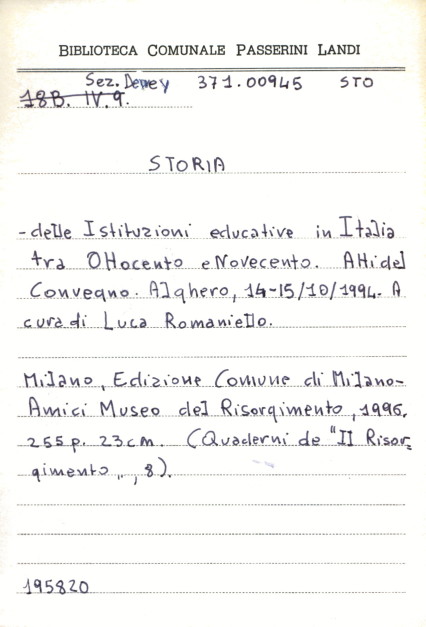 BIBLIOTECA COMUNALE PASSERINI LANDI
Sez. Dewey 371.00945 STO
18B. IV. 9.
STORIA
- delle Istituzioni educative in Italia
tra Ottocento e Novecento. Atti del
Convegno. Alghero, 14-15/10/1994. A
cura di Luca Romaniello.
Milano, Edizione Comune di Milano-
Amici Museo del Risorgimento, 1996.
255 p. 23 cm. (Quaderni de "Il Risor-
gimento„, 8).
195820